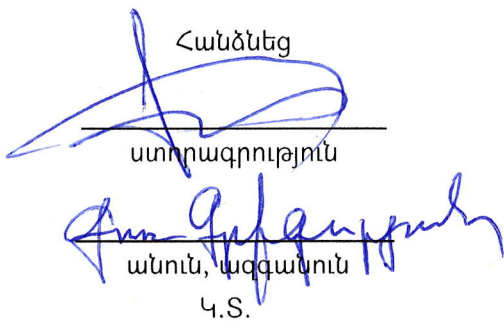 Հանձնեց
ստորագրություն
Գրիգորյան
անուն, ազգանուն
Կ.Տ.